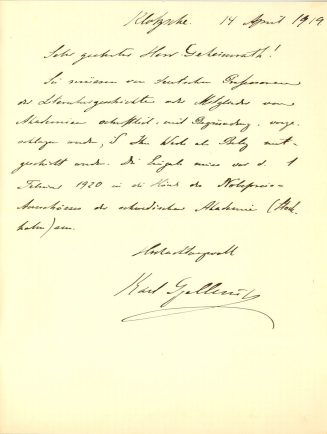 Klotzsche. 14 April 1919
Sehr geehrter Herr Geheimrath!
Sie müssen von deutschen Professoren
der Literaturgeschichte oder Mitglieder von
Akademien schriftlich, mit Begründung, vorge-
schlagen werden, u Ihr Werk als Beleg mit-
geschickt werden. Die Eingabe muss vor d. 1
Februar 1920 in die Hände des Nobelpreis-
Ausschusses der schwedischen Akademie (Stock-
holm) sein.
Hochachtungsvoll
Karl Gjellerup